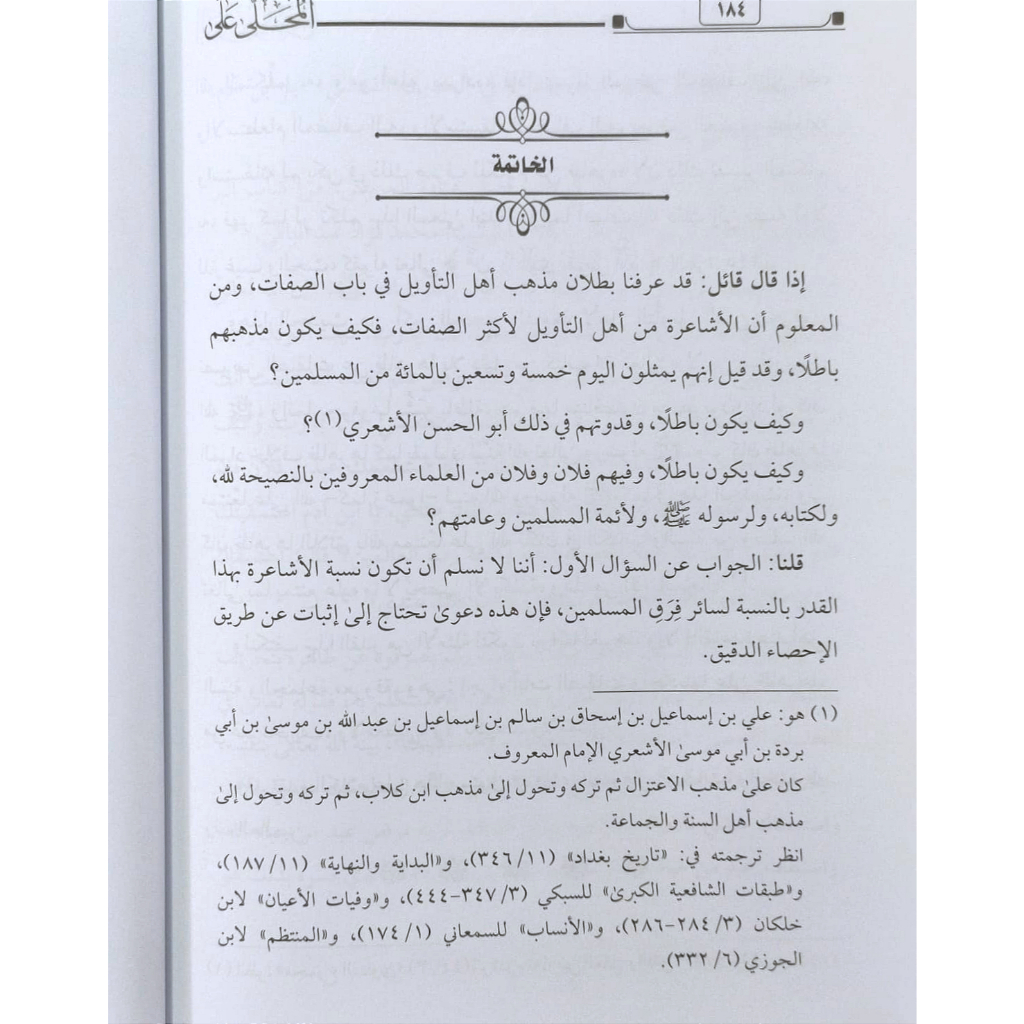 ١٨٤
المحلى على
الخاتمة
إذا قال قائل: قد عرفنا بطلان مذهب أهل التأويل في باب الصفات، ومن
المعلوم أن الأشاعرة من أهل التأويل لأكثر الصفات، فكيف يكون مذهبهم
باطلًا، وقد قيل إنهم يمثلون اليوم خمسة وتسعين بالمائة من المسلمين؟
وكيف يكون باطلًا، وقدوتهم في ذلك أبو الحسن الأشعري(١)؟
وكيف يكون باطلًا، وفيهم فلان وفلان من العلماء المعروفين بالنصيحة لله،
ولكتابه، ولرسوله ﷺ، ولأئمة المسلمين وعامتهم؟
قلنا: الجواب عن السؤال الأول: أننا لا نسلم أن تكون نسبة الأشاعرة بهذا
القدر بالنسبة لسائر فِرَقِ المسلمين، فإن هذه دعوىٰ تحتاج إلىٰ إثبات عن طريق
الإحصاء الدقيق.
(١) هو: علي بن إسماعيل بن إسحاق بن سالم بن إسماعيل بن عبد الله بن موسىٰ بن أبي
بردة بن أبي موسىٰ الأشعري الإمام المعروف.
كان علىٰ مذهب الاعتزال ثم تركه وتحول إلىٰ مذهب ابن كلاب، ثم تركه وتحول إلىٰ
مذهب أهل السنة والجماعة.
انظر ترجمته في: «تاريخ بغداد» (١١/ ٣٤٦)، و«البداية والنهاية» (١١/ ١٨٧)،
و«طبقات الشافعية الكبرىٰ» للسبكي (٣/ ٣٤٧-٤٤٤)، و«وفيات الأعيان» لابن
خلكان (٣/ ٢٨٤-٢٨٦)، و«الأنساب» للسمعاني (١/ ١٧٤)، و«المنتظم» لابن
الجوزي (٦/ ٣٣٢).